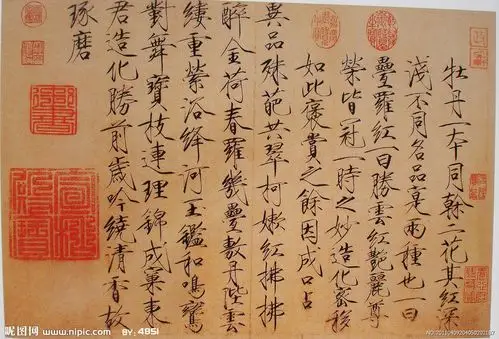 牡丹一本同幹二花其紅深
淺不同名品寔兩種也一曰
疊羅紅一曰勝雲紅艷麗尊
榮皆冠一時之妙造化密移
如此褒賞之餘因成口占
異品殊葩共翠柯嫩紅拂拂
醉金荷春羅幾疊敷丹陛雲
縷重縈浴絳河玉鑑和鳴鸞
對舞寶枝連理錦成窠東
君造化勝前歲吟繞清香故
琢磨
昵图网
www.nipic.com BY: 4851